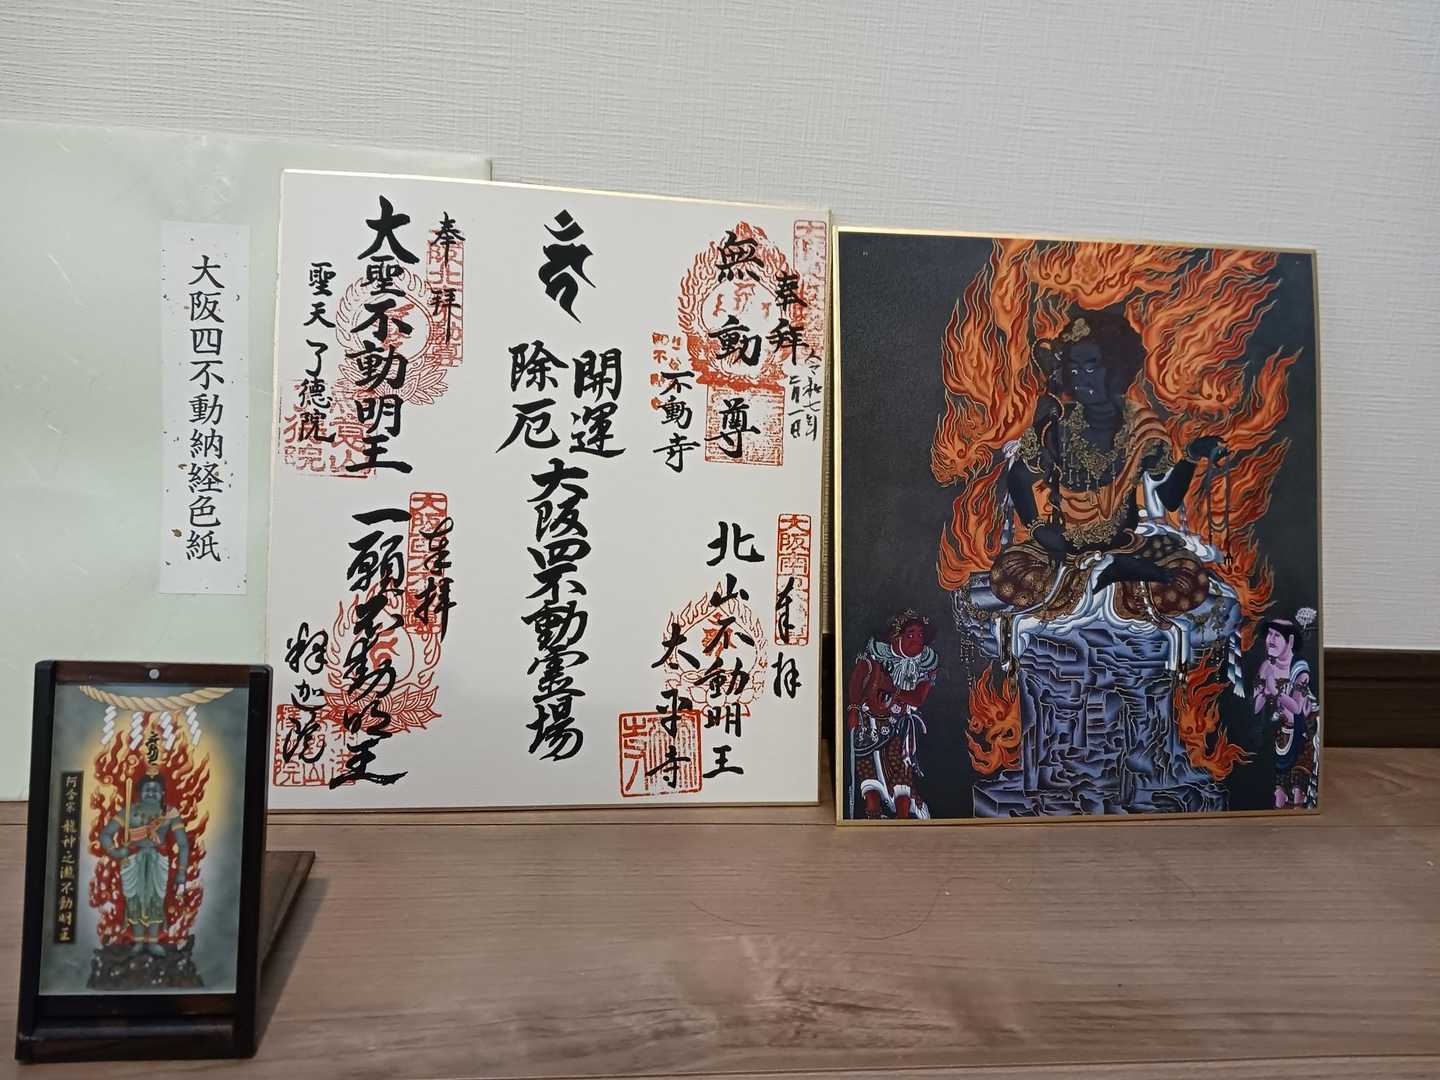 大阪四不動納経色紙
奉拝
大聖不動明王
聖天了徳院
奉拝
一願不動明王
釋迦院
開運
除厄
大阪四不動霊場
奉拝
令和七年
二月一日
無動尊
不動寺
奉拝
北山不動明王
太平寺
阿含宗 龍神之瀧不動明王